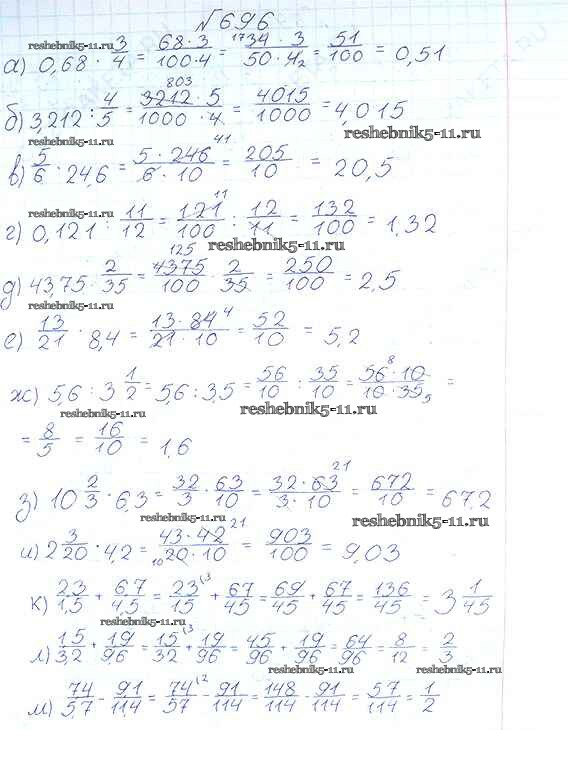 №696
reshebnik5-11.ru
а) 0,68 · 3/4 = 68·3/100·4 = 17 34·3/50·4 2 = 51/100 = 0,51
reshebnik5-11.ru
б) 3,212 : 4/5 = 803 3212·5/1000·4 = 4015/1000 = 4,015
reshebnik5-11.ru
reshebnik5-11.ru
в) 5/6 · 24,6 = 5·246 41/6·10 = 205/10 = 20,5
reshebnik5-11.ru
г) 0,121 : 11/12 = 121 11/100 · 12/11 = 132/100 = 1,32
reshebnik5-11.ru
д) 43,75 · 2/35 = 125 4375/100 · 2/35 = 250/100 = 2,5
reshebnik5-11.ru
е) 13/21 · 8,4 = 13·84 4/21·10 = 52/10 = 5,2
ж) 5,6 : 3 1/2 = 5,6 : 3,5 = 56/10 : 35/10 = 56 8·10/10·35 5 =
reshebnik5-11.ru
reshebnik5-11.ru
= 8/5 = 16/10 = 1,6
reshebnik5-11.ru
з) 10 2/3 · 6,3 = 32/3 · 63/10 = 32·63 21/3·10 = 672/10 = 67,2
reshebnik5-11.ru
reshebnik5-11.ru
и) 2 3/20 · 4,2 = 43·42 21/10 20·10 = 903/100 = 9,03
reshebnik5-11.ru
к) 2,3/1,5 + 6,7/4,5 = 23/15 3 + 67/45 = 69/45 + 67/45 = 136/45 = 3 1/45
reshebnik5-11.ru
л) 1,5/3,2 + 1,9/9,6 = 15/32 3 + 19/96 = 45/96 + 19/96 = 64/96 = 8/12 = 2/3
reshebnik5-11.ru
reshebnik5-11.ru
м) 7,4/5,7 - 9,1/11,4 = 74/57 2 - 91/114 = 148/114 - 91/114 = 57/114 = 1/2
reshebnik5-11.ru
reshebnik5-11.ru